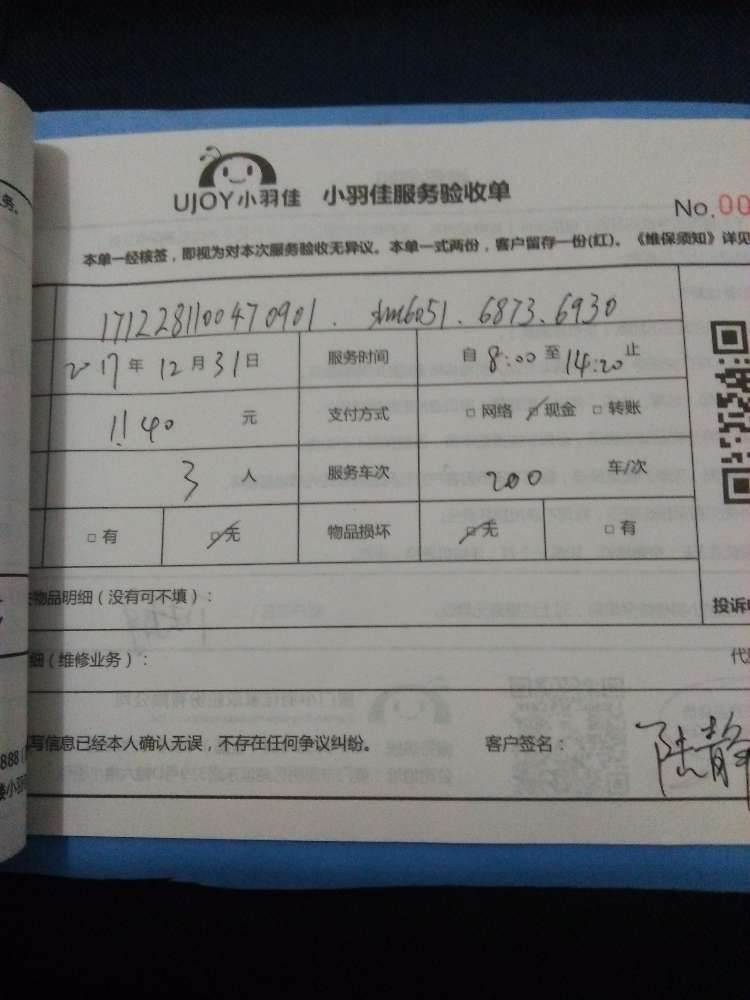 UJOY小羽佳 小羽佳服务验收单
No.00
本单一经核签，即视为对本次服务验收无异议。本单一式两份，客户留存一份(红)。《维保须知》详见
1712281100470901. xm6051.6873.6930
2017年12月31日 服务时间 自8:00至14:20止
1140元 支付方式 □网络 □现金 □转账
3人 服务车次 200 车/次
□有 □无 物品损坏 □无 □有
物品明细（没有可不填）：
投诉
细（维修业务）：
代
写信息已经本人确认无误，不存在任何争议纠纷。 客户签名： 陆静
888
小羽
务。